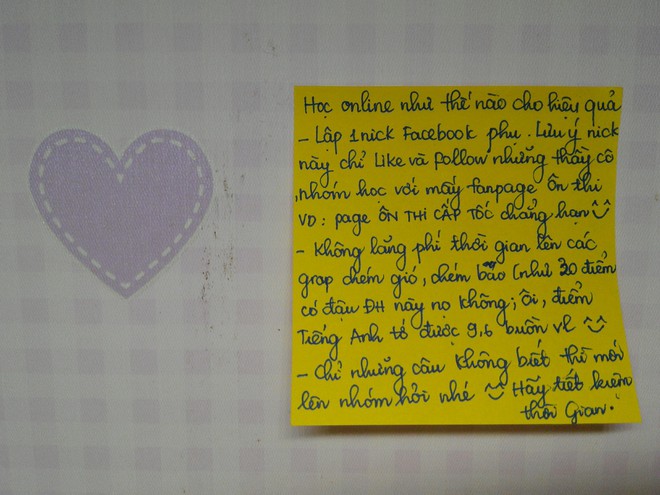 Học online như thế nào cho hiệu quả
- Lập 1 nick Facebook phụ. Lưu ý nick
này chỉ Like và Follow những thầy cô
, nhóm học với mấy fanpage ôn thi
VD: page ÔN THI CẤP TỐC chẳng hạn
- Không lãng phí thời gian lên các
grop chém gió, chém bão (như 20 điểm
có đậu ĐH này nọ không; ôi, điểm
Tiếng Anh tớ được 9,6 buồn vl
- Chỉ những câu không biết thì mới
lên nhóm hỏi nhé Hãy tiết kiệm
thời Gian.